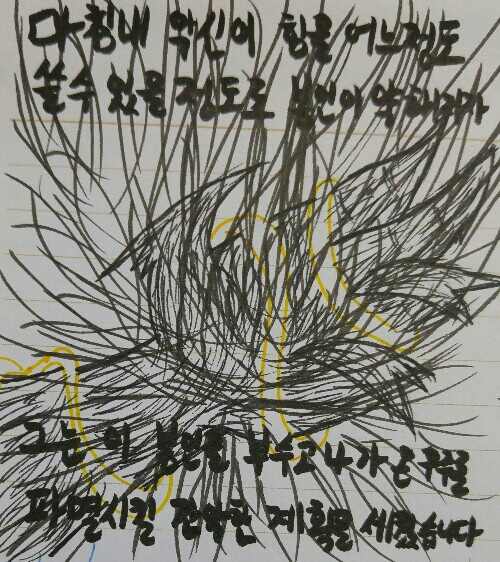 마침내 악신이 힘을 어느정도
쓸 수 있을 정도로 봉인이 약해지자
그는 이 봉인을 부수고 나가 온 우주를
파멸시킬 간악한 계획을 세웠습니다